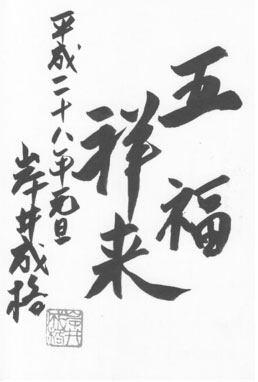 五福
祥来
平成二十八年元旦
岸井成格
岸井
成格